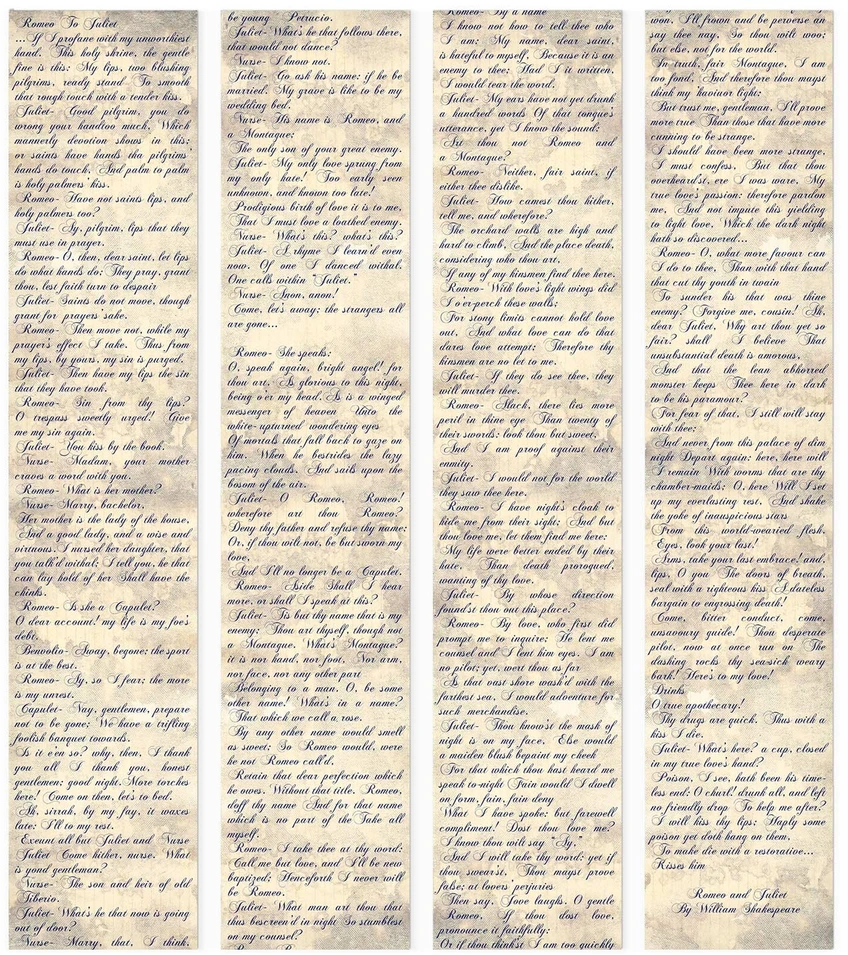 Romeo To Juliet
...If I profane with my unworthiest
hand. This holy shrine, the gentle
fine is this: My lips, two blushing
pilgrims, ready stand To smooth
that rough touch with a tender kiss.
Juliet- Good pilgrim, you do
wrong your hand too much, Which
mannerly devotion shows in this;
or saints have hands tha pilgrims'
hands do touch, And palm to palm
is holy palmers' kiss.
Romeo- Have not saints lips, and
holy palmers too?
Juliet- Ay, pilgrim, lips that they
must use in prayer.
Romeo- O, then, dear saint, let lips
do what hands do; They pray, grant
thou, lest faith turn to despair
Juliet- Saints do not move, though
grant for prayers' sake.
Romeo- Then move not, while my
prayer's effect I take. Thus from
my lips, by yours, my sin is purged.
Juliet- Then have my lips the sin
that they have took.
Romeo- Sin from thy lips?
O trespass sweetly urged! Give
me my sin again.
Juliet- You kiss by the book.
Nurse- Madam, your mother
craves a word with you.
Romeo- What is her mother?
Nurse- Marry, bachelor,
Her mother is the lady of the house,
And a good lady, and a wise and
virtuous. I nursed her daughter, that
you talk'd withal; I tell you, he that
can lay hold of her Shall have the
chinks.
Romeo- Is she a Capulet?
O dear account! my life is my foe's
debt.
Benvolio- Away, begone; the sport
is at the best.
Romeo- Ay, so I fear; the more
is my unrest.
Capulet- Nay, gentlemen, prepare
not to be gone; We have a trifling
foolish banquet towards.
Is it e'en so? why, then, I thank
you all I thank you, honest
gentlemen; good night. More torches
here! Come on then, let's to bed.
Ah, sirrah, by my fay, it waxes
late: I'll to my rest.
Exeunt all but Juliet and Nurse
Juliet Come hither, nurse. What
is yond gentleman?
Nurse- The son and heir of old
Tiberio.
Juliet- What's he that now is going
out of door?
Nurse- Marry, that, I think,
be young Petrucio.
Juliet- What's he that follows there,
that would not dance?
Nurse- I know not.
Juliet- Go ask his name: if he be
married. My grave is like to be my
wedding bed.
Nurse- His name is Romeo, and
a Montague;
The only son of your great enemy.
Juliet- My only love sprung from
my only hate! Too early seen
unknown, and known too late!
Prodigious birth of love it is to me,
That I must love a loathed enemy.
Nurse- What's this? what's this?
Juliet- A rhyme I learn'd even
now. Of one I danced withal.
One calls within "Juliet."
Nurse- Anon, anon!
Come, let's away; the strangers all
are gone...
Romeo- She speaks:
O, speak again, bright angel! for
thou art, As glorious to this night,
being o'er my head, As is a winged
messenger of heaven Unto the
white-upturned wondering eyes
Of mortals that fall back to gaze on
him. When he bestrides the lazy
pacing clouds, And sails upon the
bosom of the air.
Juliet- O Romeo, Romeo!
wherefore art thou Romeo?
Deny thy father and refuse thy name;
Or, if thou wilt not, be but sworn my
love,
And I'll no longer be a Capulet.
Romeo- Aside Shall I hear
more, or shall I speak at this?
Juliet- Tis but thy name that is my
enemy; Thou art thyself, though not
a Montague. What's Montague?
it is nor hand, nor foot, Nor arm,
nor face, nor any other part
Belonging to a man. O, be some
other name! What's in a name?
That which we call a rose.
By any other name would smell
as sweet; So Romeo would, were
he not Romeo call'd,
Retain that dear perfection which
he owes. Without that title. Romeo,
doff thy name And for that name
which is no part of the Take all
myself.
Romeo- I take thee at thy word:
Call me but love, and I'll be new
baptized; Henceforth I never will
be Romeo.
Juliet- What man art thou that
thus bescreen'd in night So stumblest
on my counsel?
Romeo- By a name
I know not how to tell thee who
I am: My name, dear saint,
is hateful to myself, Because it is an
enemy to thee; Had I it written,
I would tear the word.
Juliet- My ears have not yet drunk
a hundred words Of that tongue's
utterance, yet I know the sound:
Art thou not Romeo and
a Montague?
Romeo- Neither, fair saint, if
either thee dislike.
Juliet- How camest thou hither,
tell me, and wherefore?
The orchard walls are high and
hard to climb, And the place death,
considering who thou art,
If any of my kinsmen find thee here.
Romeo- With love's light wings did
I o'er-perch these walls;
For stony limits cannot hold love
out, And what love can do that
dares love attempt; Therefore thy
kinsmen are no let to me.
Juliet- If they do see thee, they
will murder thee.
Romeo- Alack, there lies more
peril in thine eye Than twenty of
their swords: look thou but sweet,
And I am proof against their
enmity.
Juliet- I would not for the world
they saw thee here.
Romeo- I have night's cloak to
hide me from their sight; And but
thou love me, let them find me here:
My life were better ended by their
hate, Than death prorogued,
wanting of thy love.
Juliet- By whose direction
found'st thou out this place?
Romeo- By love, who first did
prompt me to inquire; He lent me
counsel and I lent him eyes. I am
no pilot; yet, wert thou as far
As that vast shore wash'd with the
farthest sea, I would adventure for
such merchandise.
Juliet- Thou know'st the mask of
night is on my face, Else would
a maiden blush bepaint my cheek
For that which thou hast heard me
speak to-night Fain would I dwell
on form, fain, fain deny
What I have spoke: but farewell
compliment! Dost thou love me?
I know thou will say "Ay,"
And I will take thy word: yet if
thou swear'st, Thou mayst prove
false; at lovers' perjuries
Then say, Jove laughs. O gentle
Romeo, If thou dost love,
pronounce it faithfully:
Or if thou think'st I am too quickly
won, I'll frown and be perverse an
say thee nay, So thou wilt woo;
but else, not for the world.
In truth, fair Montague, I am
too fond, And therefore thou mayst
think my 'haviour light:
But trust me, gentleman, I'll prove
more true Than those that have more
cunning to be strange.
I should have been more strange,
I must confess, But that thou
overheard'st, ere I was ware, My
true love's passion: therefore pardon
me, And not impute this yielding
to light love, Which the dark night
hath so discovered...
Romeo- O, what more favour can
I do to thee, Than with that hand
that cut thy youth in twain
To sunder his that was thine
enemy? Forgive me, cousin! Ah,
dear Juliet, Why art thou yet so
fair? shall I believe That
unsubstantial death is amorous,
And that the lean abhorred
monster keeps Thee here in dark
to be his paramour?
For fear of that, I still will stay
with thee;
And never from this palace of dim
night Depart again: here, here will
I remain With worms that are thy
chamber-maids; O, here Will I set
up my everlasting rest, And shake
the yoke of inauspicious stars
From this world-wearied flesh.
Eyes, look your last!
Arms, take your last embrace! and,
lips, O you The doors of breath,
seal with a righteous kiss A dateless
bargain to engrossing death!
Come, bitter conduct, come,
unsavoury guide! Thou desperate
pilot, now at once run on The
dashing rocks thy sea-sick weary
bark! Here's to my love!
Drinks
O true apothecary!
Thy drugs are quick. Thus with a
kiss I die.
Juliet- What's here? a cup, closed
in my true love's hand?
Poison, I see, hath been his time-
less end: O churl! drunk all, and left
no friendly drop To help me after?
I will kiss thy lips; Haply some
poison yet doth hang on them,
To make die with a restorative...
Kisses him
Romeo and Juliet
By William Shakespeare